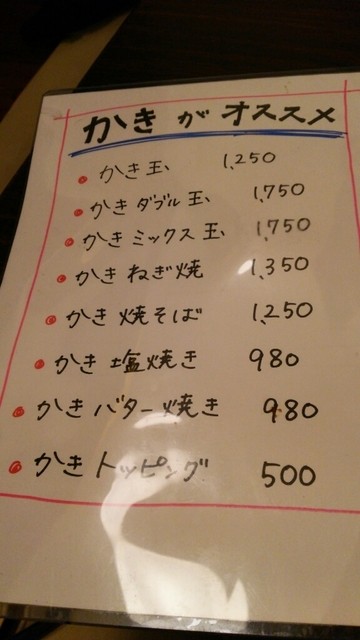 かきがオススメ
かき玉、 1,250
かきダブル玉、 1,750
かきミックス玉、 1,750
かきねぎ焼 1,350
かき焼そば 1,250
かき塩焼き 980
かきバター焼き 980
かきトッピング 500